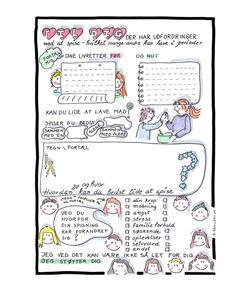 TIL DIG DER HAR UDFORDRINGER
med at spise - hvilket mange andre kan have i perioder
FORTÆL
DINE LIVRETTER FØR OG NU?
KAN DU LIDE AT LAVE MAD
SPISER DU BEDST
SAMMEN MED EN
SAMMEN MED FLERE
TEGN / FORTÆL
og hvor
Hvordan kan du bedst lide at spise
VED DU
HVORFOR
DIN SPISNING
HAR FORANDRET
SIG?
din krop
mobning
angst
stress
familie forhold
søskende
oplevelser
selvværd
andet
JEG VED DET KAN VÆRE IKKE SÅ LET FOR DIG
JEG STØTTER DIG